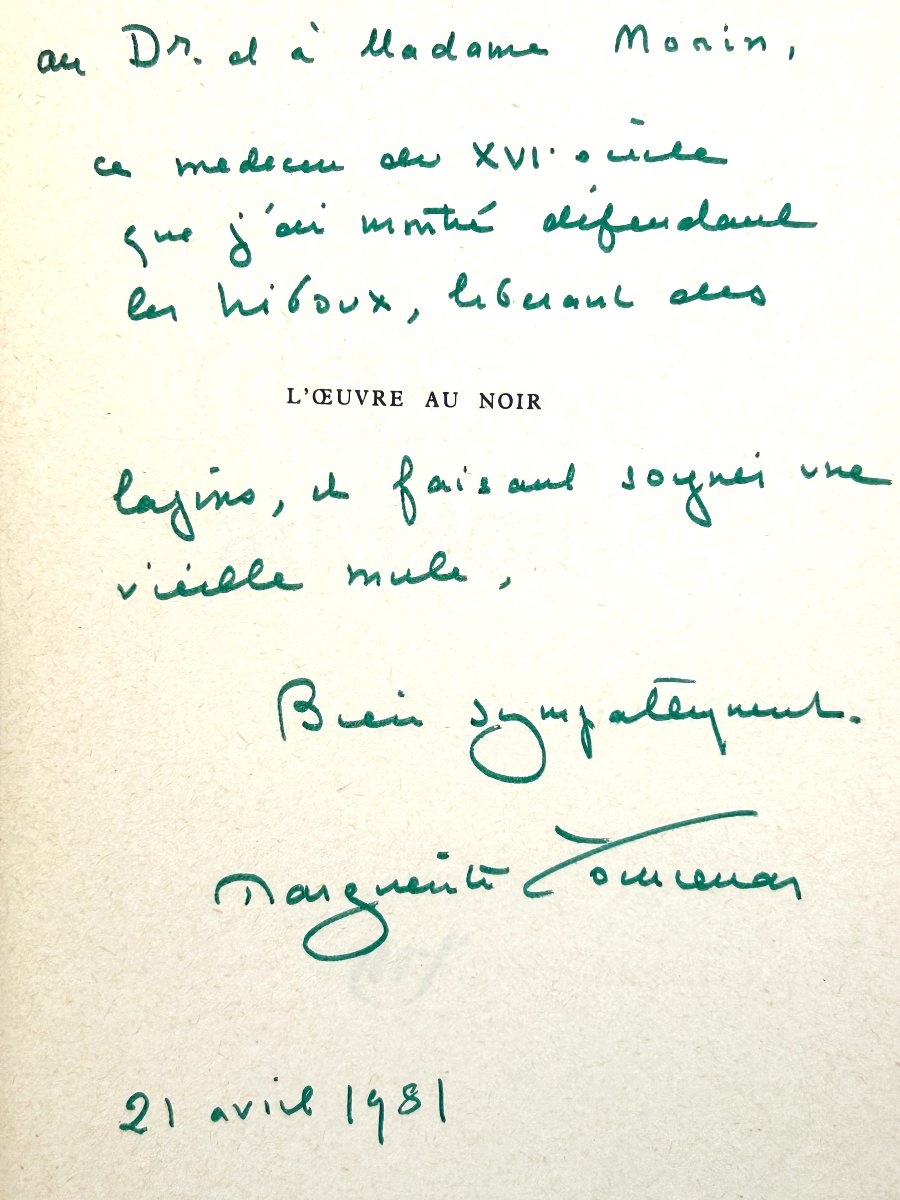 au Dr. et à Madame Morin,
ce médecin du XVIe siècle
que j'ai montré défendant
les hiboux, libérant des
L'ŒUVRE AU NOIR
lapins, et faisant soigner une
vieille mule,
Bien sympathiquement.
Marguerite Yourcenar
21 avril 1981